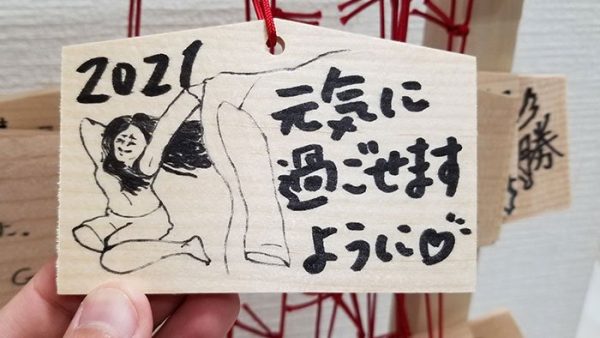 2021
元気に
過ごせます
ように♡
勝